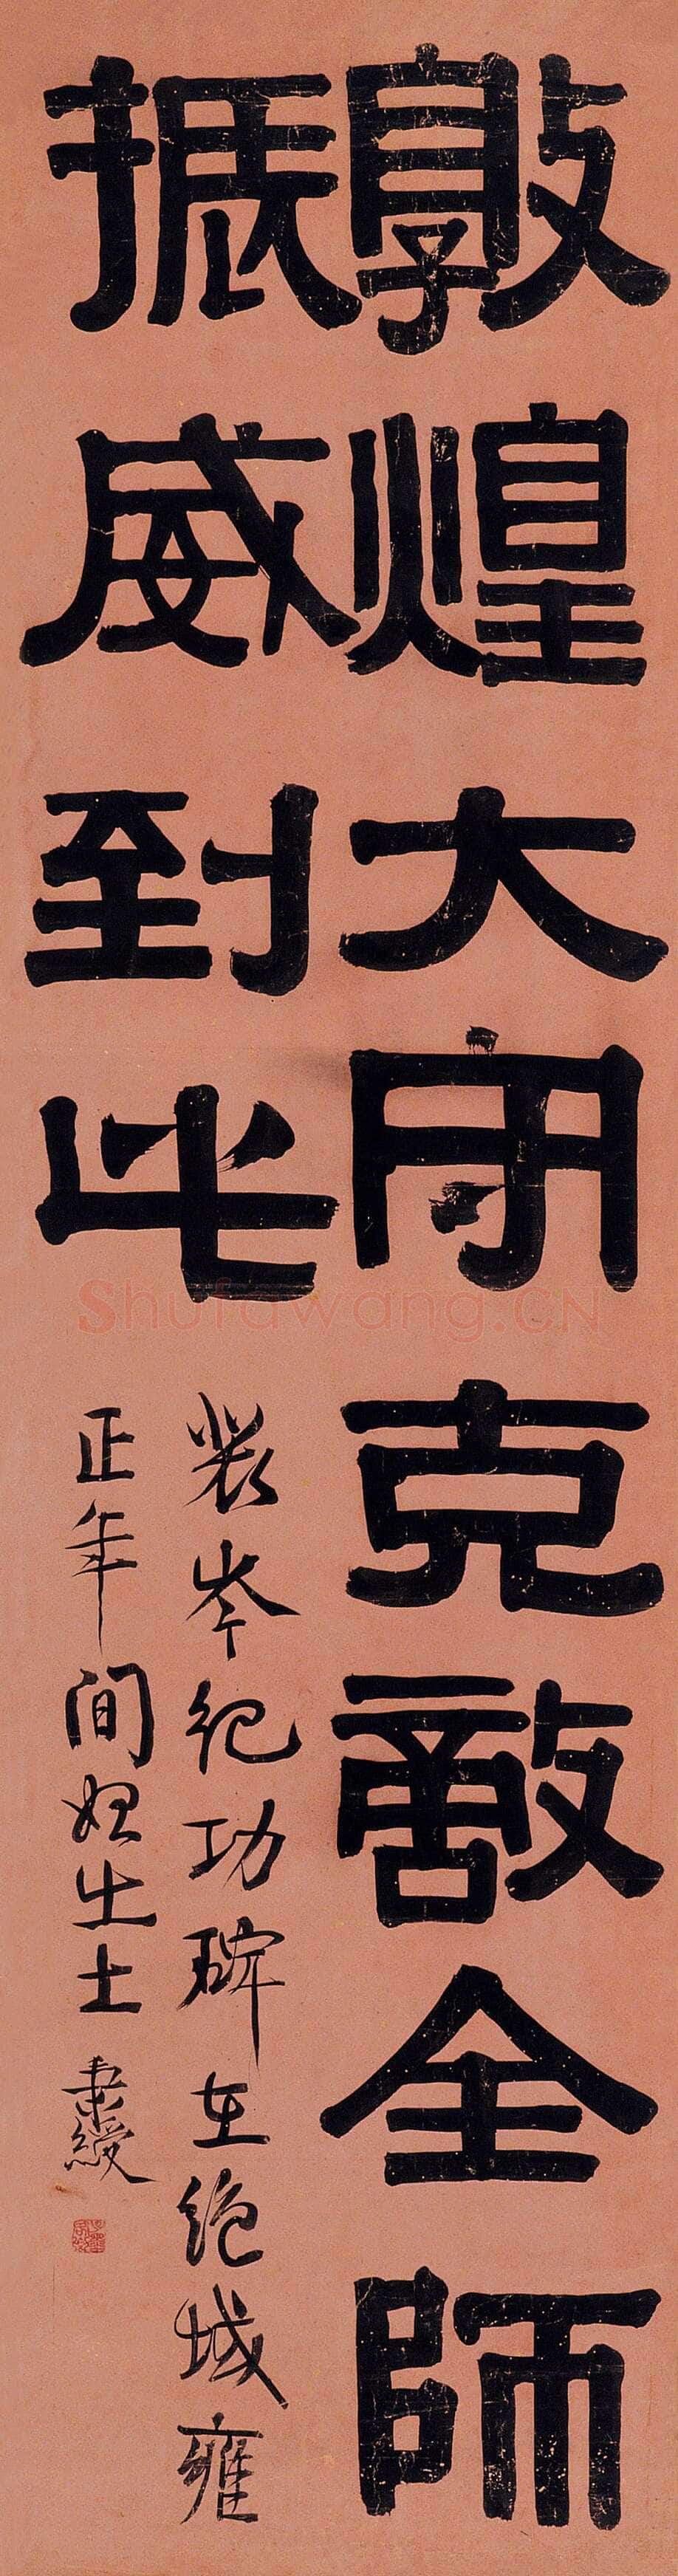 敦煌大守克敵全師
振威到此
裴岑紀功碑在絶域雍
正年間始出土 秉綬
Shufawang.CN